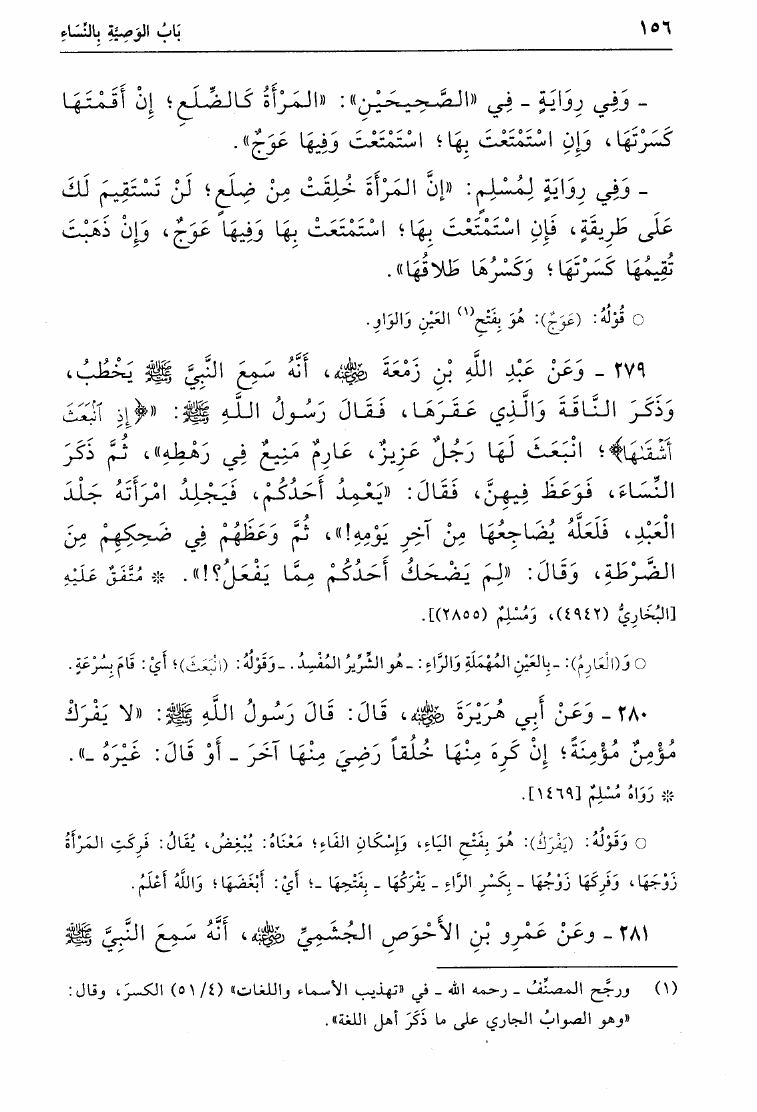 ١٥٦
بَابُ الوَصِيَّةِ بِالنِّسَاءِ
- وَفِي رِوَايَةٍ - فِي «الصَّحِيحَيْنِ»: «المَرْأَةُ كَالضِّلَعِ؛ إِنْ أَقَمْتَهَا
كَسَرْتَهَا، وَإِنِ اسْتَمْتَعْتَ بِهَا؛ اسْتَمْتَعْتَ وَفِيهَا عَوَجٌ».
- وَفِي رِوَايَةٍ لِمُسْلِمٍ: «إِنَّ المَرْأَةَ خُلِقَتْ مِنْ ضِلَعٍ؛ لَنْ تَسْتَقِيمَ لَكَ
عَلَى طَرِيقَةٍ، فَإِنِ اسْتَمْتَعْتَ بِهَا؛ اسْتَمْتَعَتْ بِهَا وَفِيهَا عَوَجٌ، وَإِنْ ذَهَبْتَ
تُقِيمُهَا كَسَرْتَهَا؛ وَكَسْرُهَا طَلاقُهَا».
○ قَوْلُهُ: (عَوَجٌ): هُوَ بِفَتْحِ(١) العَيْنِ وَالوَاوِ.
٢٧٩ - وَعَنْ عَبْدِ اللَّهِ بْنِ زَمْعَةَ رضي الله عنه، أَنَّهُ سَمِعَ النَّبِيَّ ﷺ يَخْطُبُ،
وَذَكَرَ النَّاقَةَ وَالَّذِي عَقَرَهَا، فَقَالَ رَسُولُ اللَّهِ ﷺ: «﴿إِذِ انْبَعَثَ
أَشْقَىٰهَا﴾؛ انْبَعَثَ لَهَا رَجُلٌ عَزِيزٌ، عَارِمٌ مَنِيعٌ فِي رَهْطِهِ»، ثُمَّ ذَكَرَ
النِّسَاءَ، فَوَعَظَ فِيهِنَّ، فَقَالَ: «يَعْمِدُ أَحَدُكُمْ، فَيَجْلِدُ امْرَأَتَهُ جَلْدَ
الْعَبْدِ، فَلَعَلَّهُ يُضَاجِعُهَا مِنْ آخِرِ يَوْمِهِ!»، ثُمَّ وَعَظَهُمْ فِي ضَحِكِهِمْ مِنَ
الضَّرْطَةِ، وَقَالَ: «لِمَ يَضْحَكُ أَحَدُكُمْ مِمَّا يَفْعَلُ؟!». * مُتَّفَقٌ عَلَيْهِ
[البُخَارِيُّ (٤٩٤٢)، وَمُسْلِمٌ (٢٨٥٥)].
○ وَ(الْعَارِمُ): -بِالعَيْنِ المُهْمَلَةِ وَالرَّاءِ: -هُو الشِّرِّيرُ المُفْسِدُ. -وَقَوْلُهُ: (انْبَعَثَ)؛ أَيْ: قَامَ بِسُرْعَةٍ.
٢٨٠ - وَعَنْ أَبِي هُرَيْرَةَ رضي الله عنه، قَالَ: قَالَ رَسُولُ اللَّهِ ﷺ: «لا يَفْرَكْ
مُؤْمِنٌ مُؤْمِنَةً؛ إِنْ كَرِهَ مِنْهَا خُلُقاً رَضِيَ مِنْهَا آخَرَ - أَوْ قَالَ: غَيْرَهُ -».
* رَوَاهُ مُسْلِمٌ [١٤٦٩].
○ وَقَوْلُهُ: (يَفْرَكْ): هُوَ بِفَتْحِ اليَاءِ، وَإِسْكَانِ الفَاءِ؛ مَعْنَاهُ: يُبْغِضُ، يُقَالُ: فَرِكَتِ المَرْأَةُ
زَوْجَهَا، وَفَرِكَهَا زَوْجُهَا - بِكَسْرِ الرَّاءِ - يَفْرَكُهَا - بِفَتْحِهَا -؛ أَيْ: أَبْغَضَهَا؛ وَاللَّهُ أَعْلَمُ.
٢٨١ - وعَنْ عَمْرِو بْنِ الأَحْوَصِ الجُشَمِيِّ رضي الله عنه، أَنَّهُ سَمِعَ النَّبِيَّ ﷺ
(١) ورجَّح المصنِّفُ - رحمه الله - في «تهذيب الأسماء واللغات» (٥١/٤) الكسرَ، وقال:
«وهو الصوابُ الجاري على ما ذَكَرَ أهل اللغة».